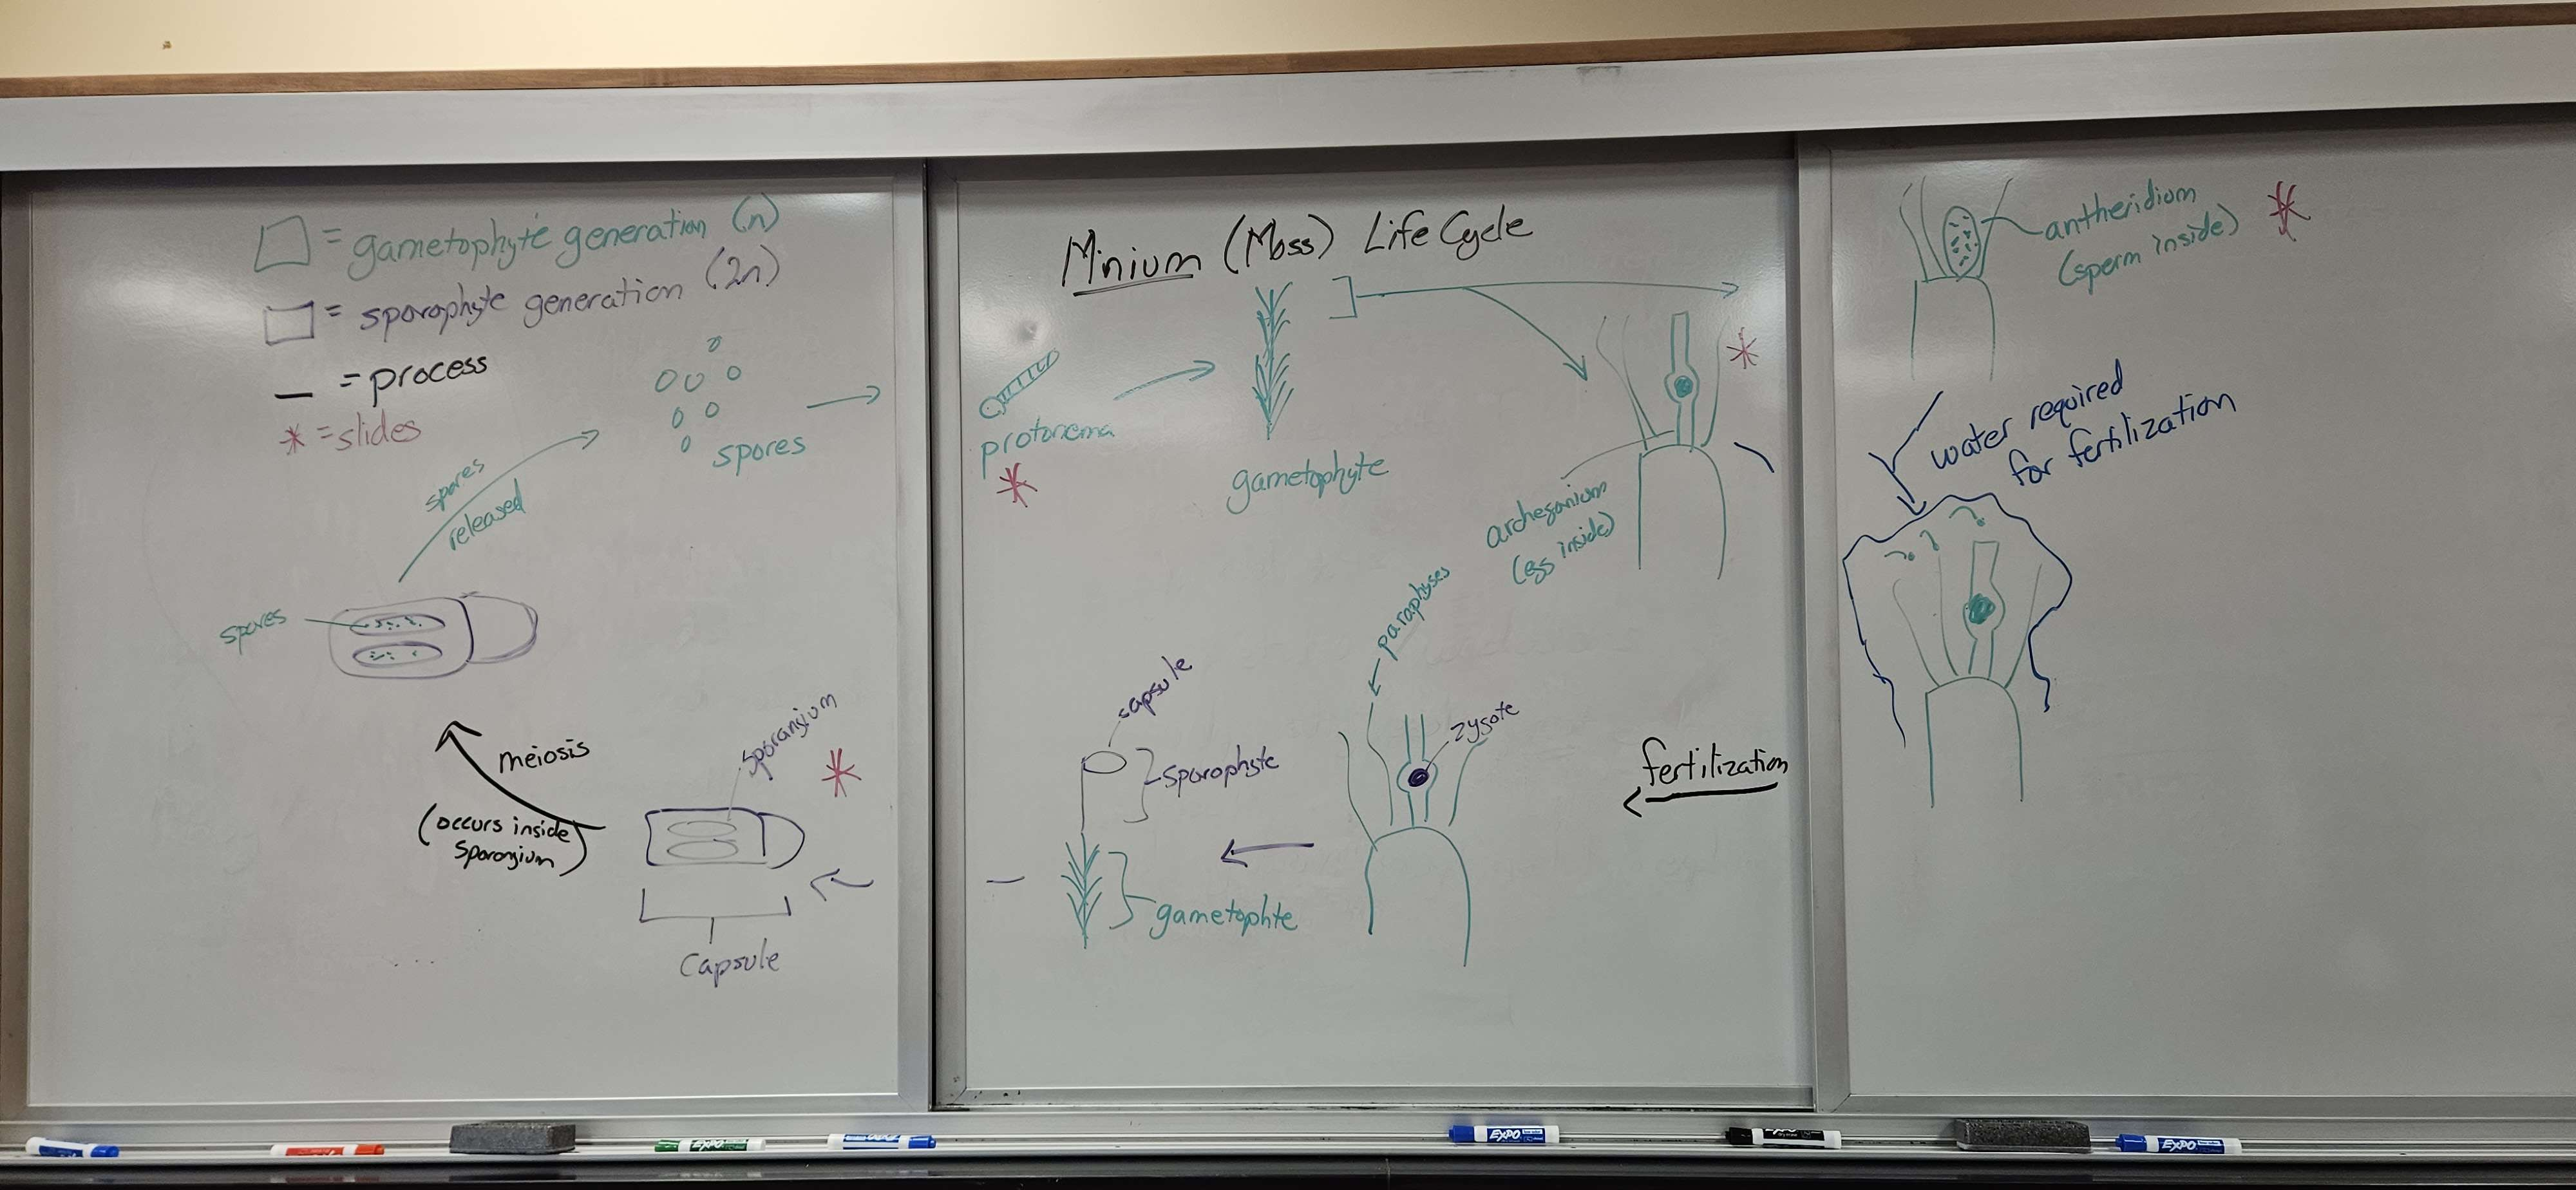 = gametophyte generation (n)
= sporophyte generation (2n)
= process
* = slides
spores
released
spores
spores
meiosis
(occurs inside
sporangium)
sporangium
*
capsule
Minium (Moss) Life Cycle
protonema
*
gametophyte
*
archegonium
(egg inside)
paraphyses
capsule
sporophyte
gametophte
zygote
fertilization
antheridium
(sperm inside)
*
water required
for fertilization
EXPO
EXPO
EXPO
EXPO